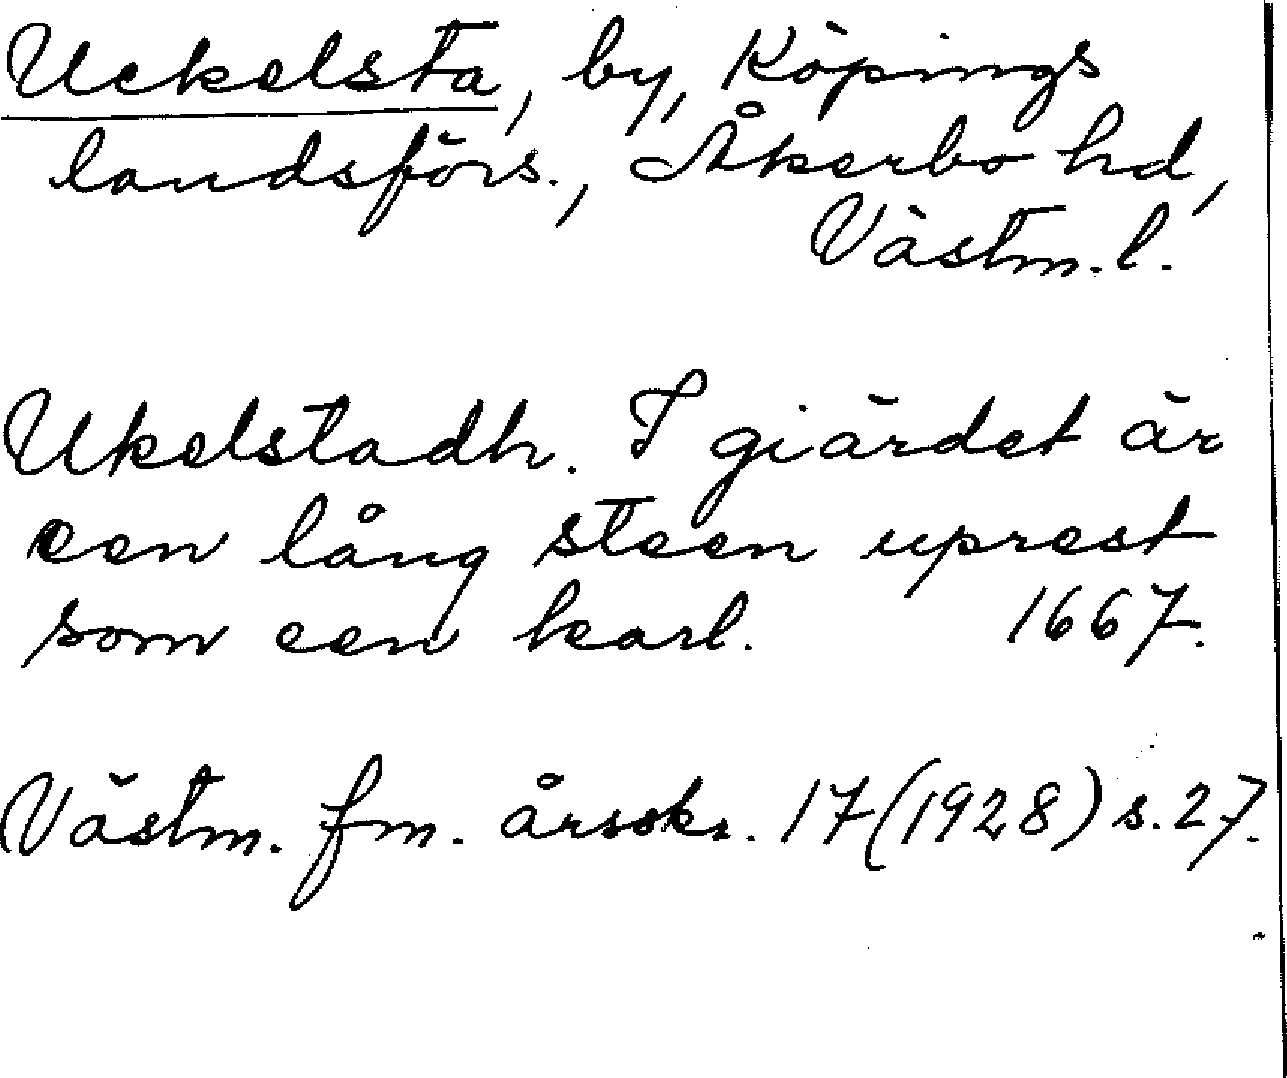 Uckelsta, by, Köpings
landsförs., Åkerbo hd,
Västm. l.
Ukelstadh. I giärdet är
een lång steen uprest
som een karl. 1667.
Västm. fm. årsskr. 17 (1928) s. 27.